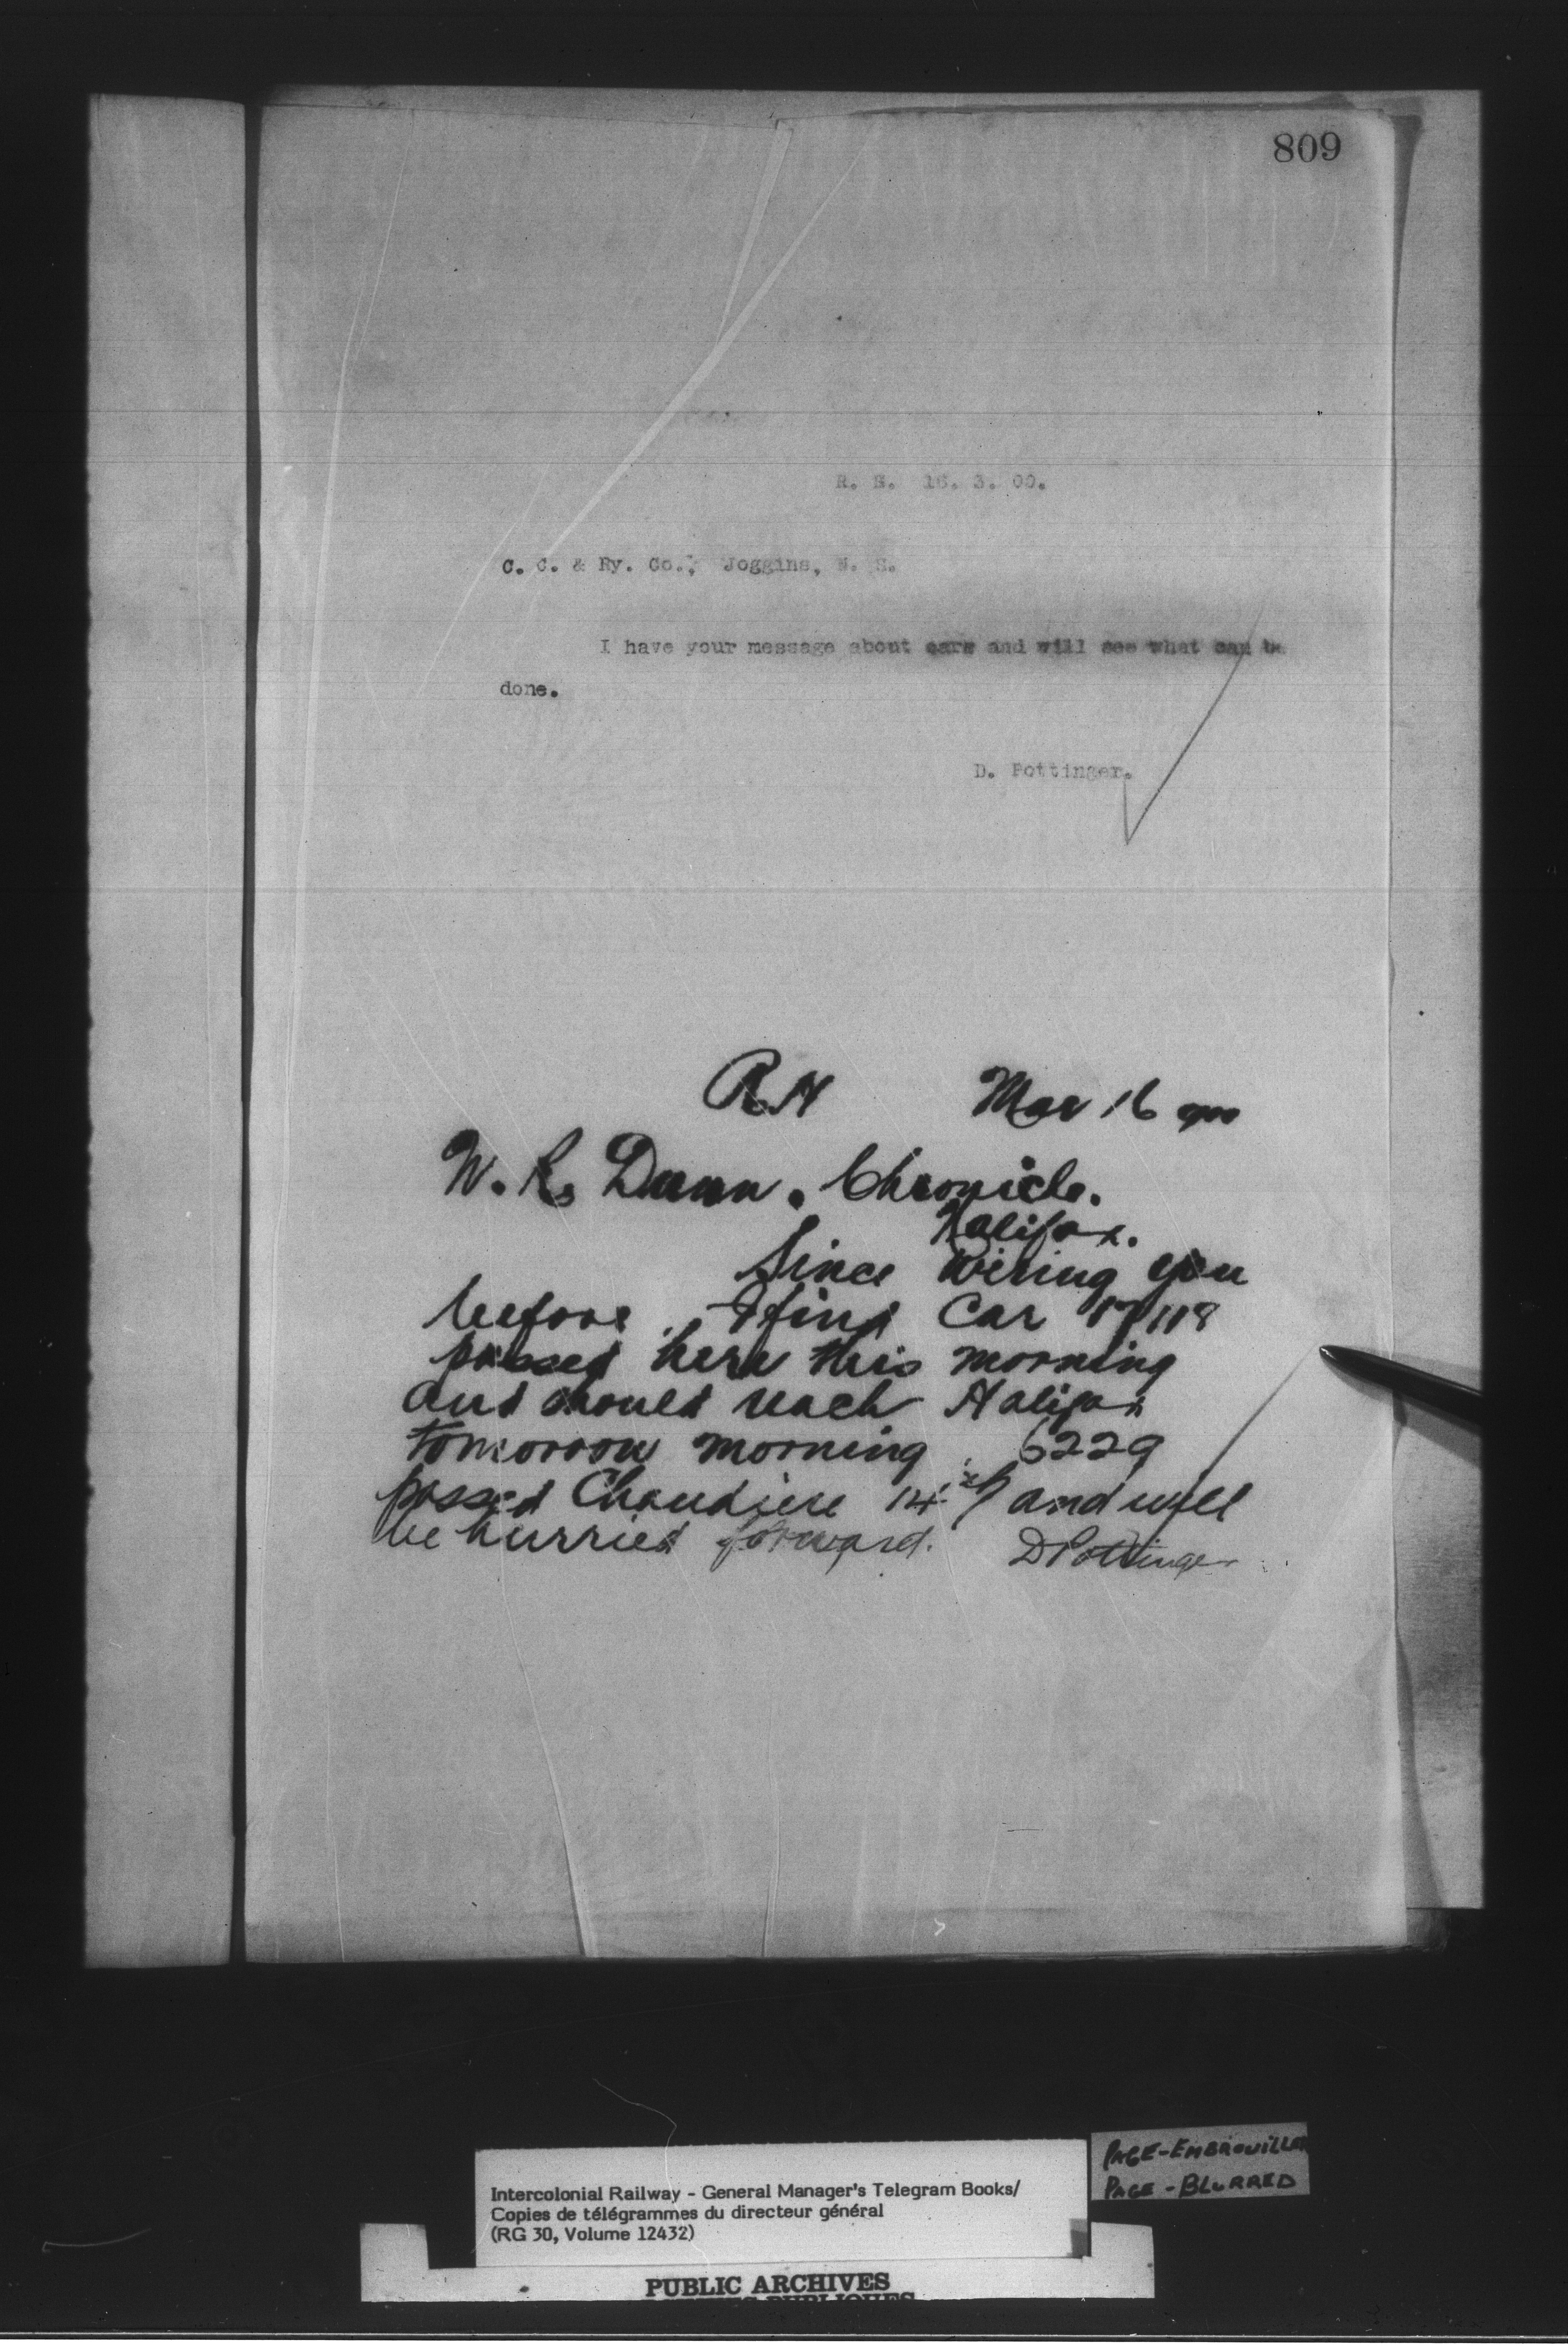 809
R. N. 16. 3. 00.
C. C. & Ry. Co., Joggins, N. S.
I have your message about cars and will see what can be
done.
D. Pottinger.
R.N Mar 16
W. R. Dunn. Chronicle.
Halifax.
Since wiring you
before I find Car 17118
passed here this morning
and should reach Halifax
tomorrow morning 6229
passed Chaudiere 14th and will
be hurried forward. D Pottinger
PAGE-EMBROUILLEE
PAGE-BLURRED
Intercolonial Railway - General Manager's Telegram Books/
Copies de télégrammes du directeur général
(RG 30, Volume 12432)
PUBLIC ARCHIVES